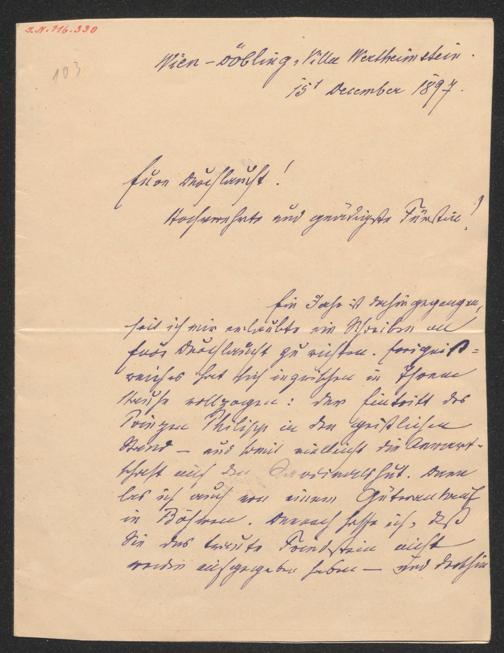 I.N. 116.330
103
Wien-Döbling, Villa Wertheimstein.
15t December 1897.
Eure Durchlaucht!
Hochverehrte und gnädigste Fürstin!
Ein Jahr ist dahingegangen,
seit ich mir erlaubte ein Schreiben an
Eure Durchlaucht zu richten. Ereigniß=
reiches hat sich inzwischen in Ihrem
Hause vollzogen: der Eintritt des
Prinzen Philipp in den geistlichen
Stand – und somit vielleicht die Anwart-
schaft auf den Cardinalshut. Dann
las ich auch von einem Güterankauf
in Böhmen. Dennoch hoffe ich, daß
Sie das traute nicht
werden aufgegeben haben – und dorthin